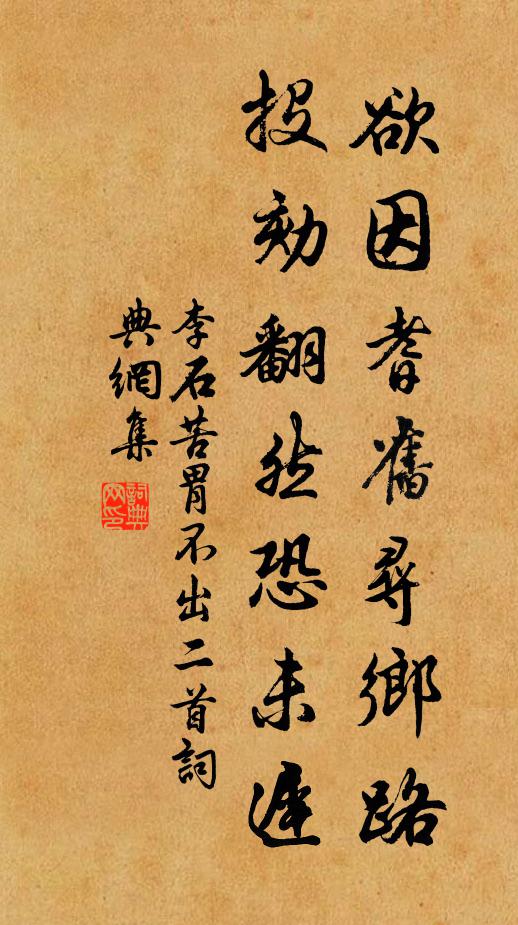 欲因耆舊尋鄉路
投劾翻然恐未遲
李石苦胃不出二首詞
典網集
詞典網印